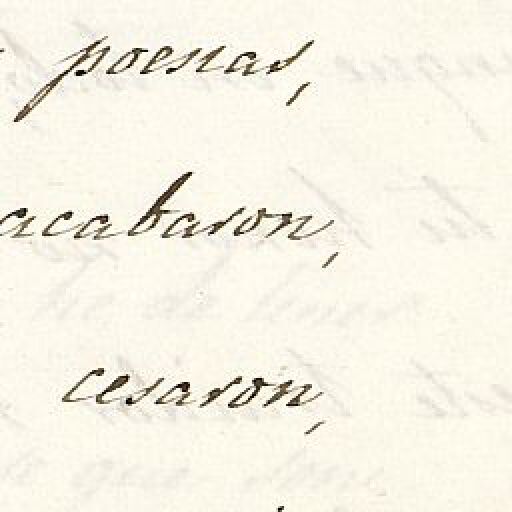 poesias,
acabaron,
cesaron,